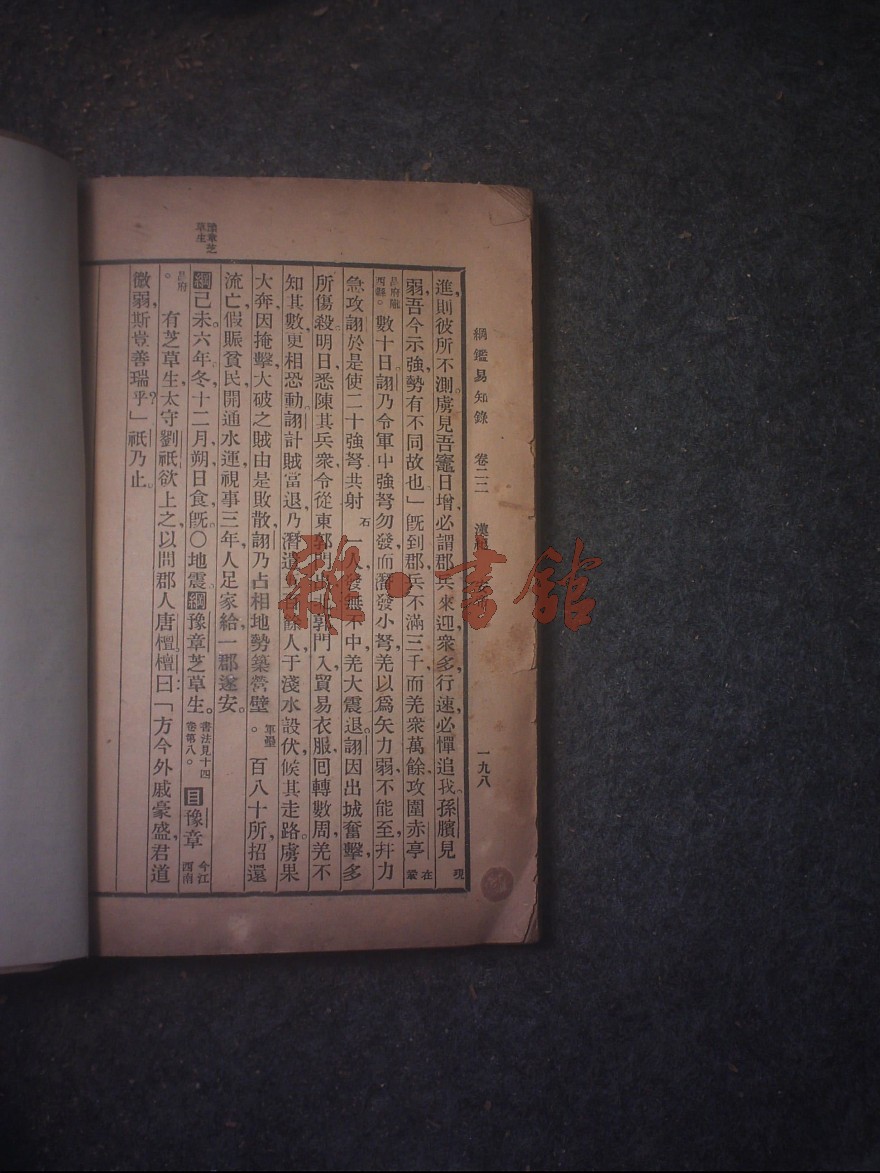 綱鑑易知錄　卷二二　漢紀　安　一九八
豫章芝
草生
進，則彼所不測。虜見吾竈日增，必謂郡兵來迎，衆多行速，必憚追我。孫臏見現
弱，吾今示強，勢有不同故也。」旣到郡，兵不滿三千，而羌衆萬餘，攻圍赤亭在鞏
昌府隴西縣。數十日。詡乃令軍中，強弩勿發，而潛發小弩；羌以爲矢力弱，不能至，幷力
急攻。詡於是使二十強弩共射石一人，發無不中，羌大震，退。詡因出城奮擊，多
所傷殺。明日，悉陳其兵衆，令從東郭門出，北郭門入，貿易衣服，回轉數周；羌不
知其數，更相恐動。詡計賊當退，乃潛遣五百餘人于淺水設伏，候其走路。虜果
大奔，因掩擊，大破之，賊由是敗散。詡乃占相地勢，築營壁軍壘。百八十所，招還
流亡，假賑貧民，開通水運。視事三年，人足家給，一郡遂安。
綱己未，六年，冬十二月，朔，日食，旣。○地震。綱豫章芝草生。書法見十四卷第八。目豫章今江西南
昌府。有芝草生，太守劉祇欲上之，以問郡人唐檀，檀曰：「方今外戚豪盛，君道
微弱，斯豈善瑞乎？」祇乃止。
雜·書館